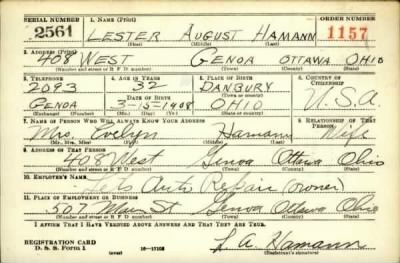 SERIAL NUMBER 1. NAME (Print) ORDER NUMBER
2561 LESTER AUGUST HAMANN 1157
(First) (Middle) (Last)
2. ADDRESS (Print)
408 WEST GENOA OTTAWA OHIO
(Number and street or R. F. D. number) (Town) (County) (State)
3. TELEPHONE 4. AGE IN YEARS 5. PLACE OF BIRTH 6. COUNTRY OF CITIZENSHIP
2093 32 DANBURY
(Town or county)
GENOA DATE OF BIRTH 3-15-1908 OHIO U.S.A.
(Exchange) (Number) (Mo.) (Day) (Yr.) (State or country)
7. NAME OF PERSON WHO WILL ALWAYS KNOW YOUR ADDRESS 8. RELATIONSHIP OF THAT PERSON
Mrs. Evelyn Hamann Wife
(Mr., Mrs., Miss) (First) (Middle) (Last)
9. ADDRESS OF THAT PERSON
408 West Genoa Ottawa Ohio
(Number and street or R. F. D. number) (Town) (County) (State)
10. EMPLOYER'S NAME
Auto Repair (owner)
11. PLACE OF EMPLOYMENT OR BUSINESS
507 Main St Genoa Ottawa Ohio
(Number and street or R. F. D. number) (Town) (County) (State)
I AFFIRM THAT I HAVE VERIFIED ABOVE ANSWERS AND THAT THEY ARE TRUE.
REGISTRATION CARD
D. S. S. Form 1 16—17105 L. A. Hamann
(Registrant's signature)